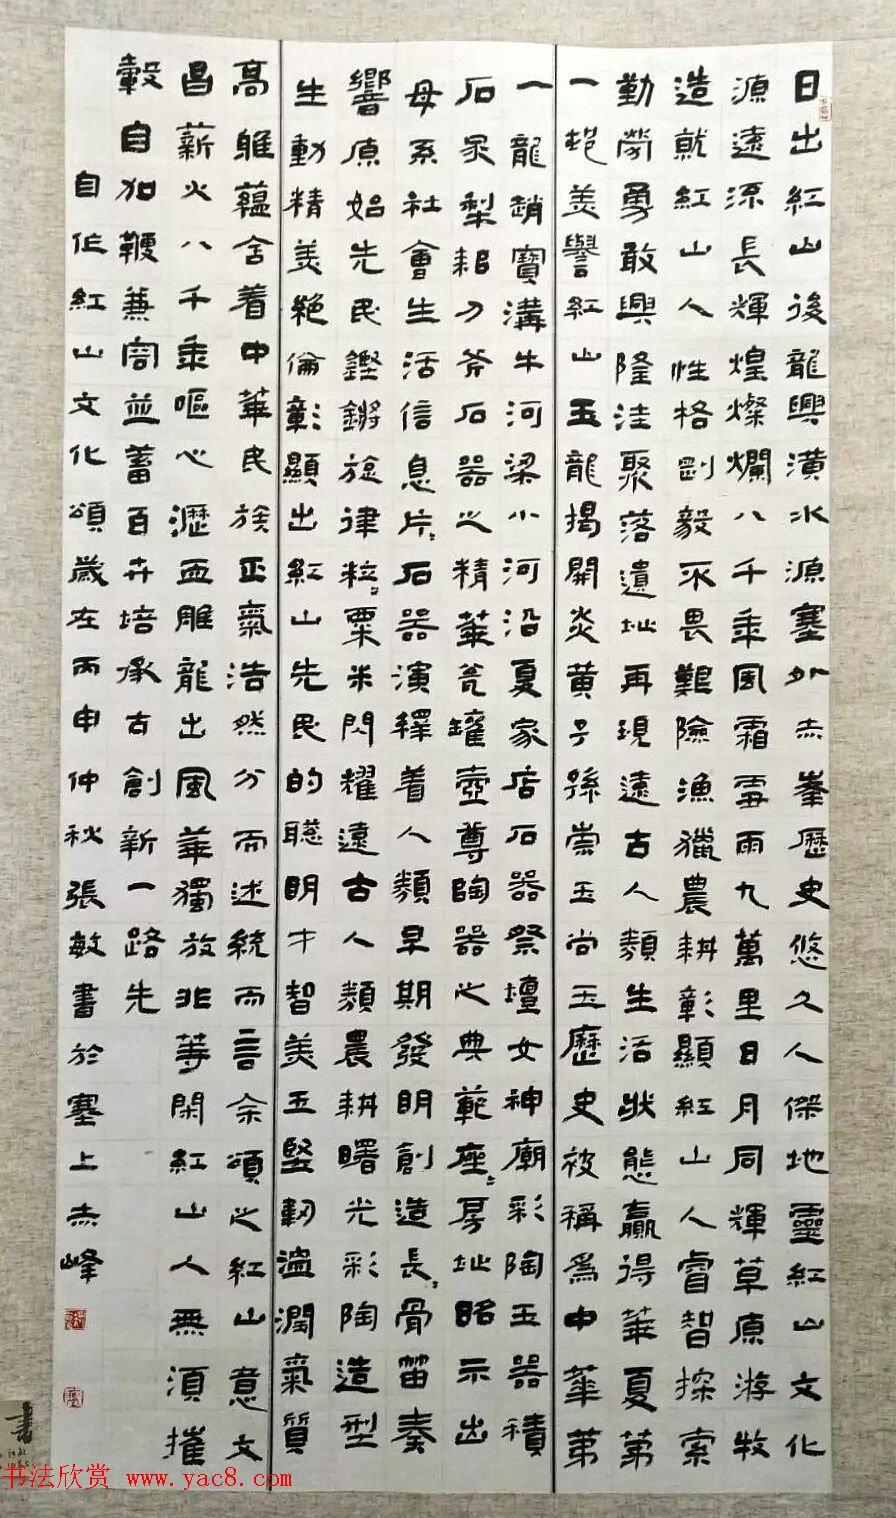 日出紅山後龍興潢水源塞外赤峯歷史悠久人傑地靈紅山文化
源遠流長輝煌燦爛八千年風霜雪雨九萬里日月同輝草原游牧
造就紅山人性格剛毅不畏艱險漁獵農耕彰顯紅山人睿智探索
勤勞勇敢興隆洼聚落遺址再現遠古人類生活狀態贏得華夏第
一邨美譽紅山玉龍揭開炎黃子孫崇玉尚玉歷史被稱爲中華第
一龍趙寶溝牛河梁小河沿夏家店石器祭壇女神廟彩陶玉器積
石冢犁耜刀斧石器之精華瓮罐壺尊陶器之典範座〻房址昭示出
母系社會生活信息片〻石器演繹着人類早期發明創造長〻骨笛奏
響原始先民鏗鏘旋律粒〻粟米閃耀遠古人類農耕曙光彩陶造型
生動精美絕倫彰顯出紅山先民的聰明才智美玉堅韌溫潤氣質
高雅蘊含着中華民族正氣浩然分而述統而言余頌之紅山意文
昌薪火八千年嘔心瀝血雕龍出風華獨放非等閑紅山人無須摧
轂自加鞭兼容並蓄百卉培承古創新一路先
自作紅山文化頌歲在丙申仲秋張敏書於塞上赤峰
书法欣赏 www.yac8.com